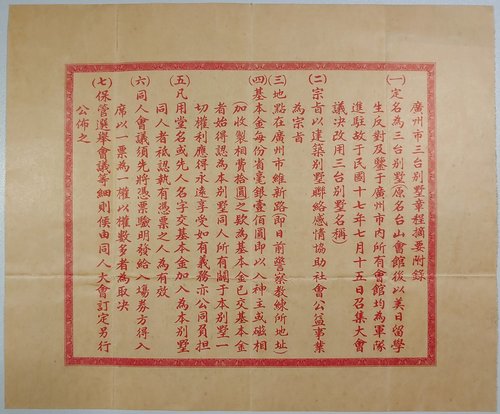 廣州市三台別墅章程摘要附錄
(一)定名為三台別墅(原名台山會館後以美日留學
生反對及鑒于廣州市內所有會館均為軍隊
進駐故于民國十七年七月十五日召集大會
議决改用三台別墅名稱)
(二)宗旨以建築別墅聯絡感情協助社會公益事業
為宗旨
(三)地點在廣州市維新路(即日前警察教練所地址)
(四)基本金每份省毫銀壹佰圓即以入神主或磁相
加收製相費拾圓之欵為基本金已交基本金
者始得認為本別墅同人所有關于本別墅一
切權利應得永遠享受如有義務亦公同負担
(五)凡用堂名或先人名字交基本金加入為本別墅
同人者祇認執有憑票之人為有效
(六)同人會議須先將憑票驗明發給入場券方得入
席以一票為一權以權數多者為取决
(七)保管選舉會議等細則候由同人大會訂定另行
公佈之